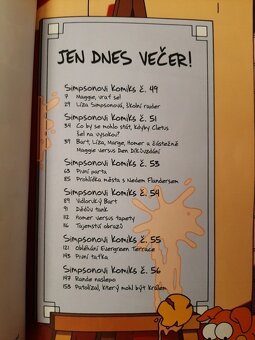 JEN DNES VEČER!
Simpsonovi Komiks č. 49
7 Maggie, vrať se!
29 Líza Simpsonová, školní raider
Simpsonovi Komiks č. 51
34 Co by se mohlo stát, kdyby Cletus
šel na vysokou?
39 Bart, Líza, Marge, Homer a částečně
Maggie versus Den Díkůvzdání
Simpsonovi Komiks č. 53
63 Pivní parta
85 Prohlídka města s Nedem Flandersem
Simpsonovi Komiks č. 54
89 Vidlorvký Bart
91 Dědův tank
112 Homer versus tapety
116 Tajemství obrazů
Simpsonovi Komiks č. 55
121 Obléhání Evergreen Terrace
143 Pivní taťka
Simpsonovi Komiks č. 56
147 Rande naslepo
153 Patolízal, který mohl být králem